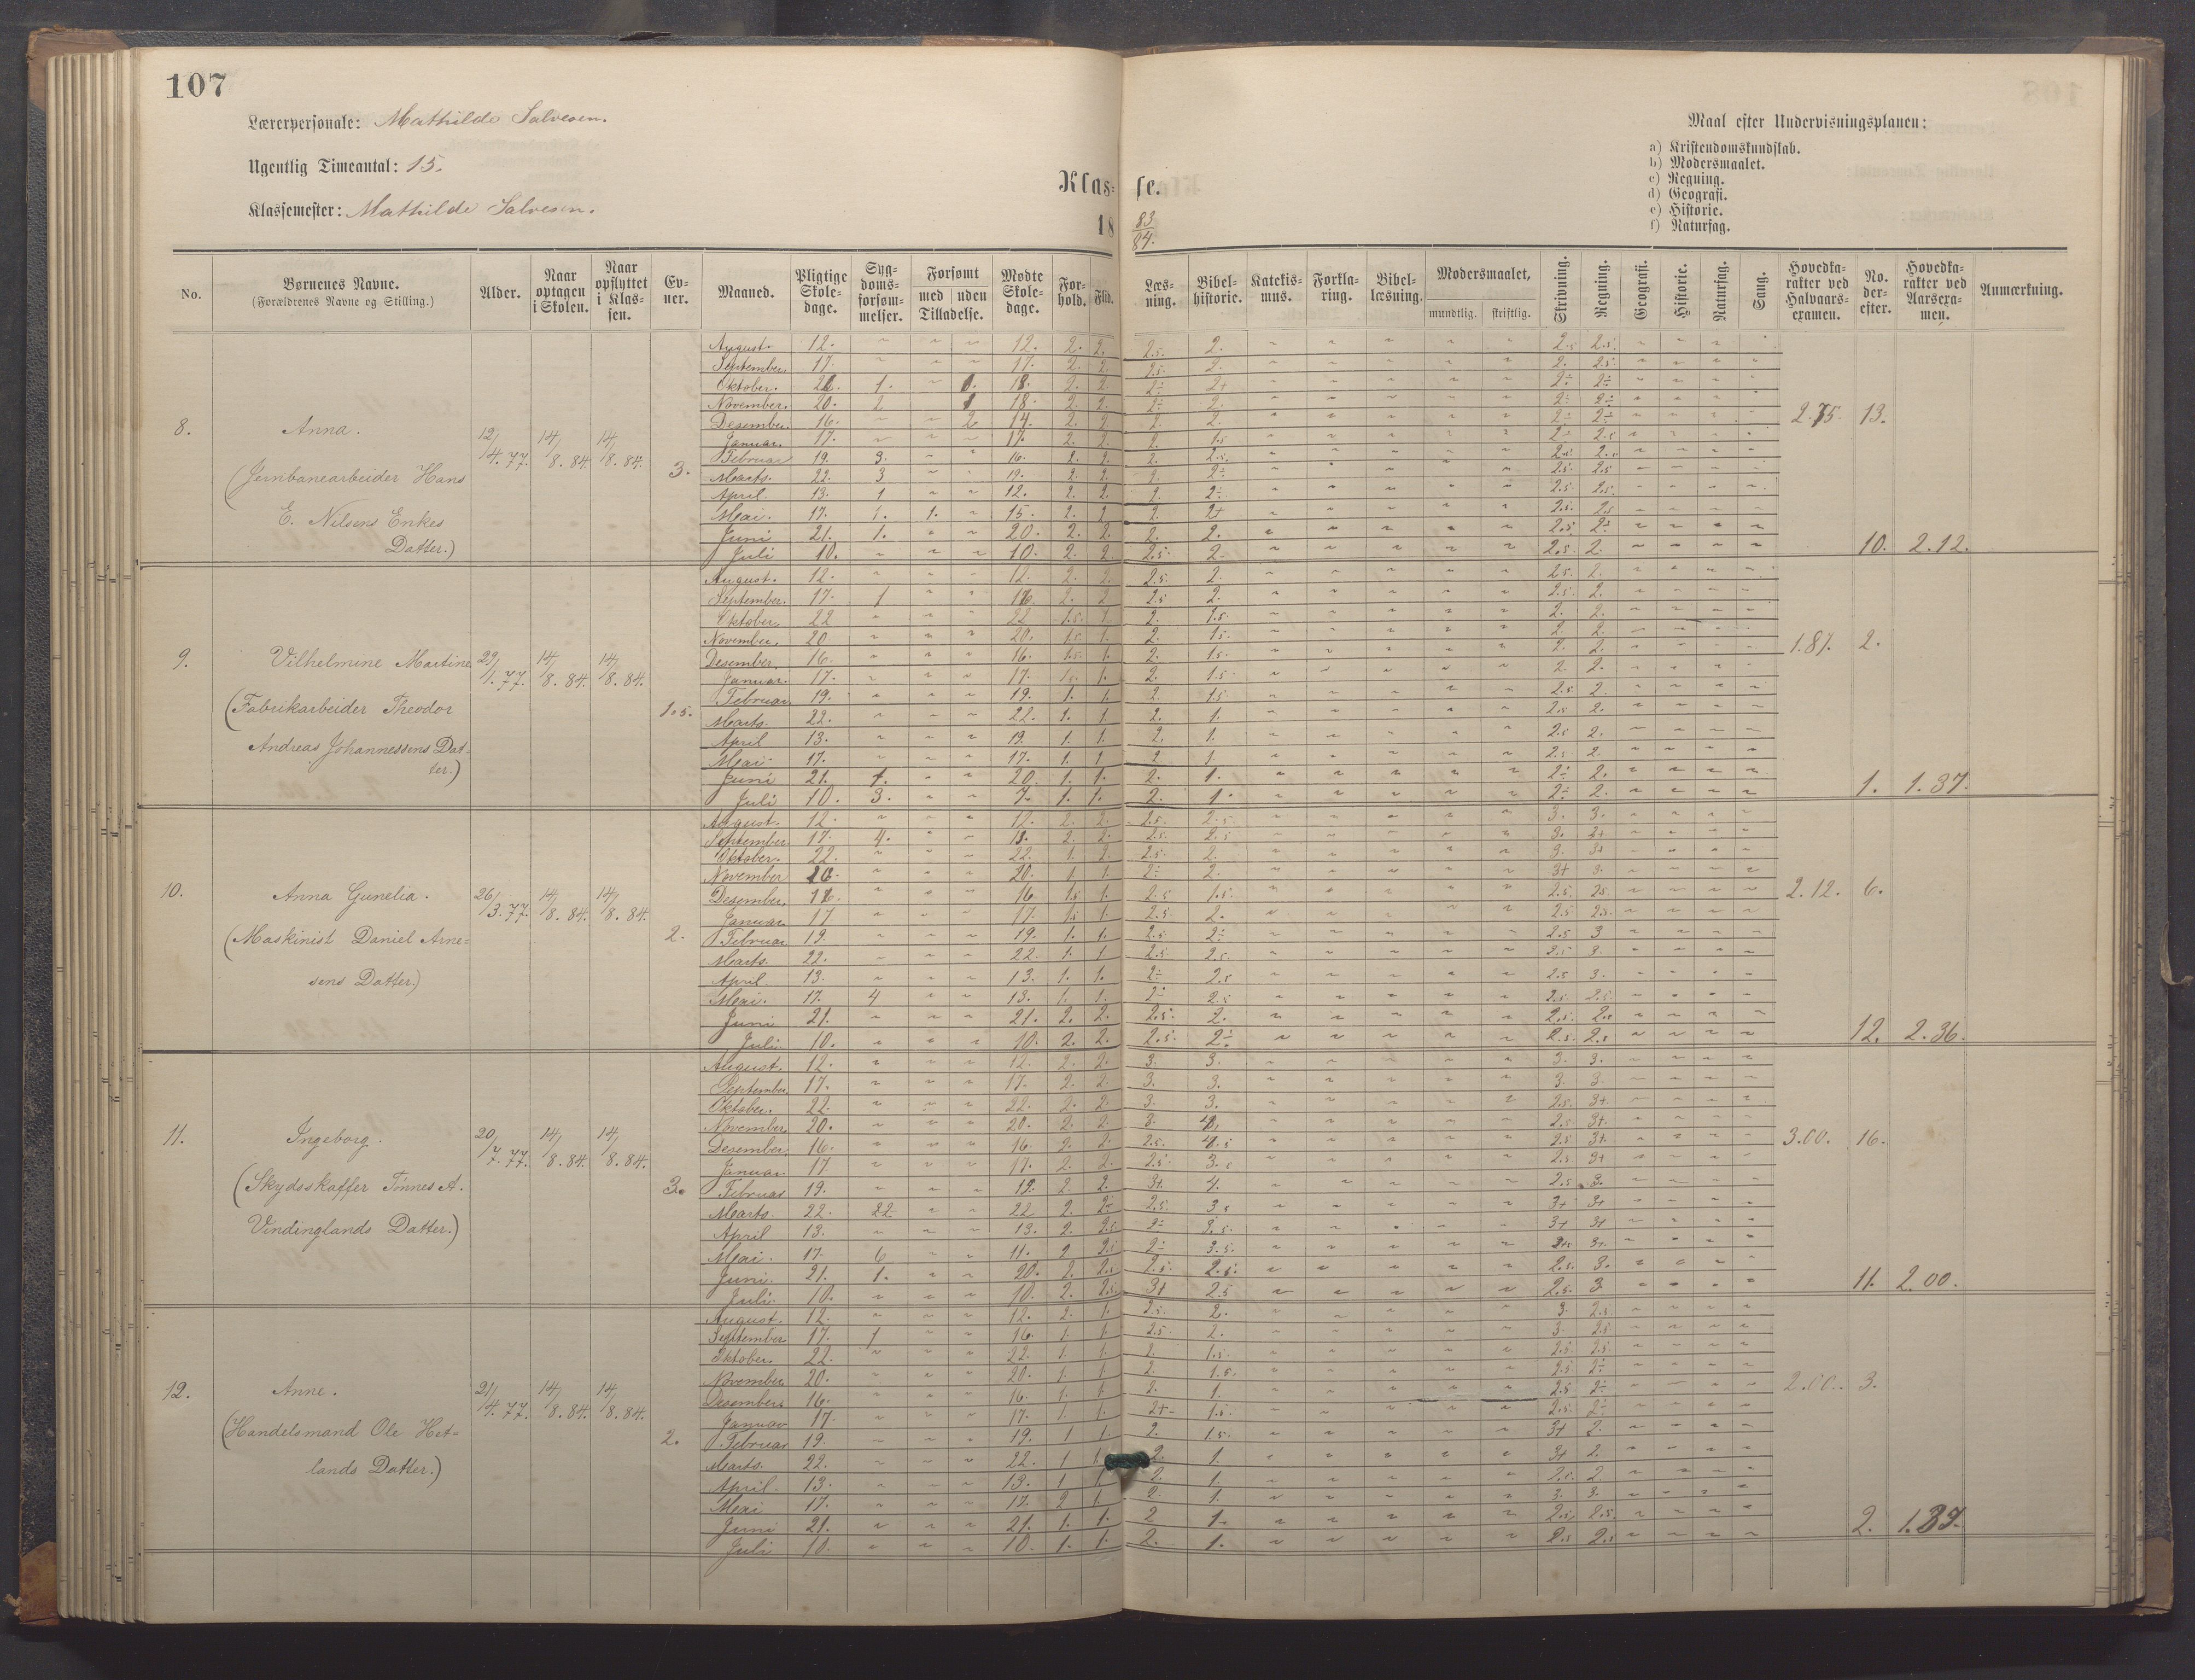 107
Lærerpersonale: Mathilde Salvesen.
Ugentlig Timeantal: 15.
Klassemester: Mathilde Salvesen.
Klas- se.
18 83/84.
Maal efter Undervisningsplanen:
a) Kristendomskundskab.
b) Modersmaalet.
c) Regning.
d) Geografi.
e) Historie.
f) Naturfag.
No. Børnenes Navne. (Forældrenes Navne og Stilling.) Alder. Naar optagen i Skolen. Naar opflyttet i Klassen. Evner. Maaned. Pligtige Skoledage. Sygdomsforsømmelser. Forsømt med uden Tilladelse. Mødte Skoledage. Forhold. Flid. Læsning. Bibelhistorie. Katekismus. Forklaring. Bibellæsning. Modersmaalet, mundtlig. skriftlig. Skrivning. Regning. Geografi. Historie. Naturfag. Sang. Hovedkarakter ved Halvaarsexamen. No. derefter. Hovedkarakter ved Aarsexamen. Anmærkning.
8. Anna. 12/4.77. 14/8.84. 14/8.84. 3. 2.75. 13.
(Jernbanearbeider Hans
E. Nilsens Enkes
Datter.) 10. 2.12.
August. 12. 12. 2. 2. 2.5. 2. 2.5 2.5.
September. 17. 17. 2. 2. 2.5. 2. 2. 2.5.
Oktober. 1. 18. 2. 2.
November. 20. 18. 2. 2.
Desember. 16. 2 14. 2. 2.
Januar. 17. 17. 2. 2. 2. 1.5
Februar 19. 3. 16. 2. 2.
Marts. 22. 3 19. 2. 2.
April. 13. 1 12. 2. 2.
Mai. 17. 1. 1. 15. 2. 2 2. 2+
Juni 21. 1. 20. 2. 2. 2. 2.
Juli 10. 10. 2. 2 2.5. 2. 2.5 2.
9. Vilhelmine Martine 29/1.77. 14/8.84. 14/8.84. 1.5. 1.87. 2.
(Fabrikarbeider Theodor
Andreas Johannessens Dat-
ter.) 1. 1.37.
August. 12. 12. 2. 2. 2.5. 2. 2.5. 2.
September. 17. 1 16. 2. 2 2.5 2. 2.5. 2.
Oktober. 22 22 1.5. 1. 2. 1.5. 2. 2.
November. 20 20. 1.5 1. 2. 1.5. 2. 2.
Desember. 16. 16. 1.5 1. 2. 1.5. 2. 2.
Januar. 17. 17. 1.5. 1. 2. 1.5. 2. 2.
Februar 19. 19. 1. 1. 2. 1.5. 2.5 2.
Marts. 22. 22. 1. 1 2. 1. 2.5 2.
April 13. 1. 1. 2. 1. 2.5 2.
Mai 17. 17. 1. 1 2 1. 2.5 2.
Juni 21. 1. 20. 1. 1. 2. 1. 2÷ 2.
Juli 10. 3. 7. 1. 1. 2. 1. 2÷ 2.
10. Anna Gunelia. 26/3.77. 14/8.84. 14/8.84. 2. 2.12. 6.
(Maskinist Daniel Arne=
sens Datter.) 12. 2.36.
August. 12. 12. 2. 2. 2.5. 2.5. 3. 3.
September 17. 4. 13. 2. 2. 2.5. 2.5 3. 3+
Oktober. 22. 22. 1. 2. 2.5. 2. 3. 3+
November 20. 20. 1 1. 2÷ 2. 3+ 3.
Desember. 16. 16 1.5 1. 2.5 1.5. 2.5. 2.5.
Januar 17 17. 1.5 1. 2.5. 2. 2.5 2.5.
Februar 19. 19. 1. 1. 2.5 2÷ 2.5 3
Marts. 22. 22 1. 1 2.5. 2.5. 3.
April 13. 13. 1. 1. 2÷ 2.5 2.5 3.
Mai. 17. 4 13. 1. 1. 2÷ 2.5 2.5. 2.5.
Juni 21. 21. 2. 2. 2.5. 2. 2.5. 2.5
Juli 10. 10. 2. 2. 2.5. 2÷ 2.5. 2.5
11. Ingeborg. 20/7.77. 14/8.84. 14/8.84. 3. 3.00. 16.
(Skydsskaffer Tönnes A.
Vindinglands Datter.) 11. 2.00.
August. 12. 12. 2. 2. 3. 3. 3. 3.
September 17. 17. 2. 2. 3. 3. 3. 3.
Oktober. 22. 22. 2. 2. 3. 3. 2.5. 3+
November 20. 20. 2. 2. 3. 2.5 3+.
Desember. 16. 16. 2. 2. 2.5. 2.5 3+.
Januar. 17. 17. 2. 2. 2.5. 2.5 3+
Februar 19. 19. 2. 2. 3+. 4. 2.5 3.
Marts. 22. 22 22 2. 2÷ 2.5. 3+ 3+
April 13. 13. 2. 2.5 2÷ 3.5. 3+ 3+
Mai. 17. 6 11. 2 2.5 2÷ 3.5.
Juni. 21. 1. 20. 2. 2.5 2.5. 2.5. 2.5. 3.
Juli. 10. 10. 2. 2.5. 3+ 2.5 2.5. 3
12. Anne. 21/4.77. 14/8.84. 14/8.84. 2. 2.00. 3.
(Handelsmand Ole Het=
lands Datter.) 2. 1.87.
August. 12. 12. 2. 1. 2.5. 2. 3. 2.5.
September 17. 1 16. 1. 1. 2.5. 2. 3. 2.5
Oktober. 22. 22. 1. 1. 2. 1.5. 2.5. 2.5.
November 20. 20. 1. 1. 2. 1.5. 2.5 2÷
Desember 16. 16. 1. 1. 2. 1. 2.5 2÷
Januar 17. 17. 1. 1. 2+ 1.5. 2.5. 2÷
Februar 19. 19. 1 1. 2. 1.5. 3+ 2.
Marts. 22. 22. 1 1. 2. 1. 3+ 2.
April. 13. 13. 1 1. 2. 1. 2.5. 2
Mai 17. 17. 2 1. 2. 1. 3. 3.
Juni 21. 21. 1. 1. 2 1. 2.5. 2.5.
Juli 10. 10. 1. 1. 2. 1. 2.5 2.5